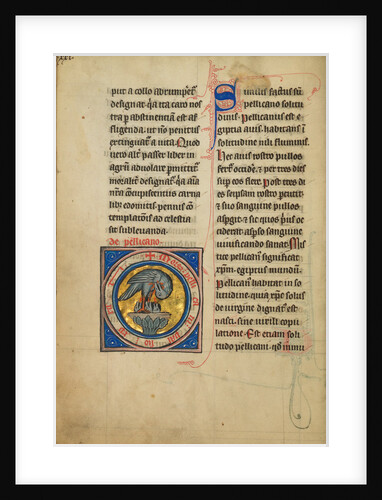 put a collo abrumpet
designat. q̄a ita caro nos
tra p̄ abstinentiam est af
fligenda. ut nō penitus
extinguat a uita. Quod
uero alt̄ passer liber in
agrū aduolare pmittit
moralit̄ designat. q̄a aīa
nr̄a
lib̄ ꝯcupiscentiis carna
cōmitis. pennis cō
templatōis ad celestia
sit subleuanda.
de pellicano
Similis factus sū
pellicano solitu
dinis. Pellicanus est e
giptia auis. habitans ī
solitudine nili fluminis.
Hec auis rostro pullos
ferit. occidit. ⁊ per tres dies
sup eos flet. Post tres di
es seipsam rostro petit.
⁊ suo sanguine pullos
aspgit. ⁊ sic quos pius oc
ciderat asp̄so sanguine
uiuificando sanat. Mis
tice pellicanꝰ significat
xp̄m. egiptus mundū.
Pellicanꝰ habitat in so
litudine. quia xp̄c solus
de uirgine dignatꝰ est
nasci. sine uirili copu
latione. Est etiam soli
tudo pellicani. qd̄ inmu